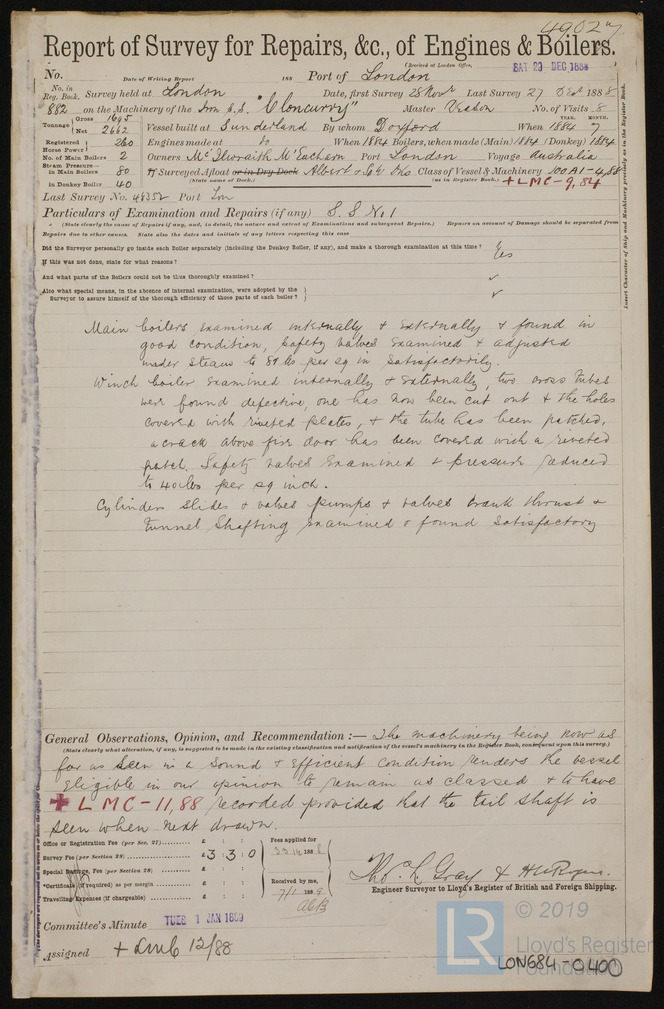 49027
Report of Survey for Repairs, &c., of Engines & Boilers.
(Received at London Office,
SAT 29 DEC 1888
No.
Date of Writing Report 188 Port of London
No. in Reg. Book.
Survey held at London Date, first Survey 28 Novr Last Survey 27 Decr 1888
882 on the Machinery of the Iron S.S. "Cloncurry" Master No. of Visits 8
Tonnage Gross 1695 Net 2662
Vessel built at Sunderland By whom Doxford When YEAR. 1884 MONTH. 7
Registered Horse Power 260
Engines made at do When 1884 Boilers, when made (Main) 1884 (Donkey) 1884
No. of Main Boilers 2
Owners McIlwraith McEacharn Port London Voyage Australia
Steam Pressure— in Main Boilers 80
If Surveyed Afloat or in Dry Dock Albert Dks Class of Vessel & Machinery 100A1-4,88
(State name of Dock.) (as in Register Book.) + LMC-9,84
in Donkey Boiler 40
Last Survey No. 49352 Port Lon
Particulars of Examination and Repairs (if any) S.S. No 1
(State clearly the cause of Repairs if any, and, in detail, the nature and extent of Examinations and subsequent Repairs.) Repairs on account of Damage should be separated from
Repairs due to other causes. State also the dates and initials of any letters respecting this case
Did the Surveyor personally go inside each Boiler separately (including the Donkey Boiler, if any), and make a thorough examination at this time? Yes
If this was not done, state for what reasons?
And what parts of the Boilers could not be thoroughly examined? ✓
Also what special means, in the absence of internal examination, were adopted by the
Surveyor to assure himself of the thorough efficiency of those parts of each boiler? ✓
Insert Character of Ship and Machinery precisely as in the Register Book.
Main boilers examined internally & externally & found in
good condition, safety valves examined & adjusted
under steam to 81 lbs per sq in satisfactorily.
Winch boiler examined internally & externally, two cross tubes
were found defective, one has now been cut out & the holes
covered with riveted plates, & the tube has been patched,
a crack above fire door has been covered with a riveted
patch. Safety valves examined & pressure reduced
to 40 lbs per sq inch.
Cylinders slides & valves pumps & valves crank thrust &
tunnel shafting examined & found satisfactory
General Observations, Opinion, and Recommendation :— The machinery being now as
(State clearly what alteration, if any, is suggested to be made in the existing classification and notification of the vessel's machinery in the Register Book, consequent upon this survey.)
far as seen in a sound & efficient condition renders the vessel
eligible in our opinion to remain as classed & to have
+ LMC-11,88 recorded provided that the tail shaft is
seen when next drawn.
Office or Registration Fee (per Sec. 27) £ : :
Survey Fee (per Section 28) £3 : 3 : 0
Special Damage Fee (per Section 28) £ : :
*Certificate (if required) as per margin £ : :
Travelling Expenses (if chargeable) £ : :
Fees applied for
188
Received by me,
7/1 1889
Thos. L. Gray &
Engineer Surveyor to Lloyd's Register of British and Foreign Shipping.
Committee's Minute TUES 1 JAN 1889
Assigned + LMC 12/88
LR
© 2019
Lloyd's Register
Foundation
LON684-0400